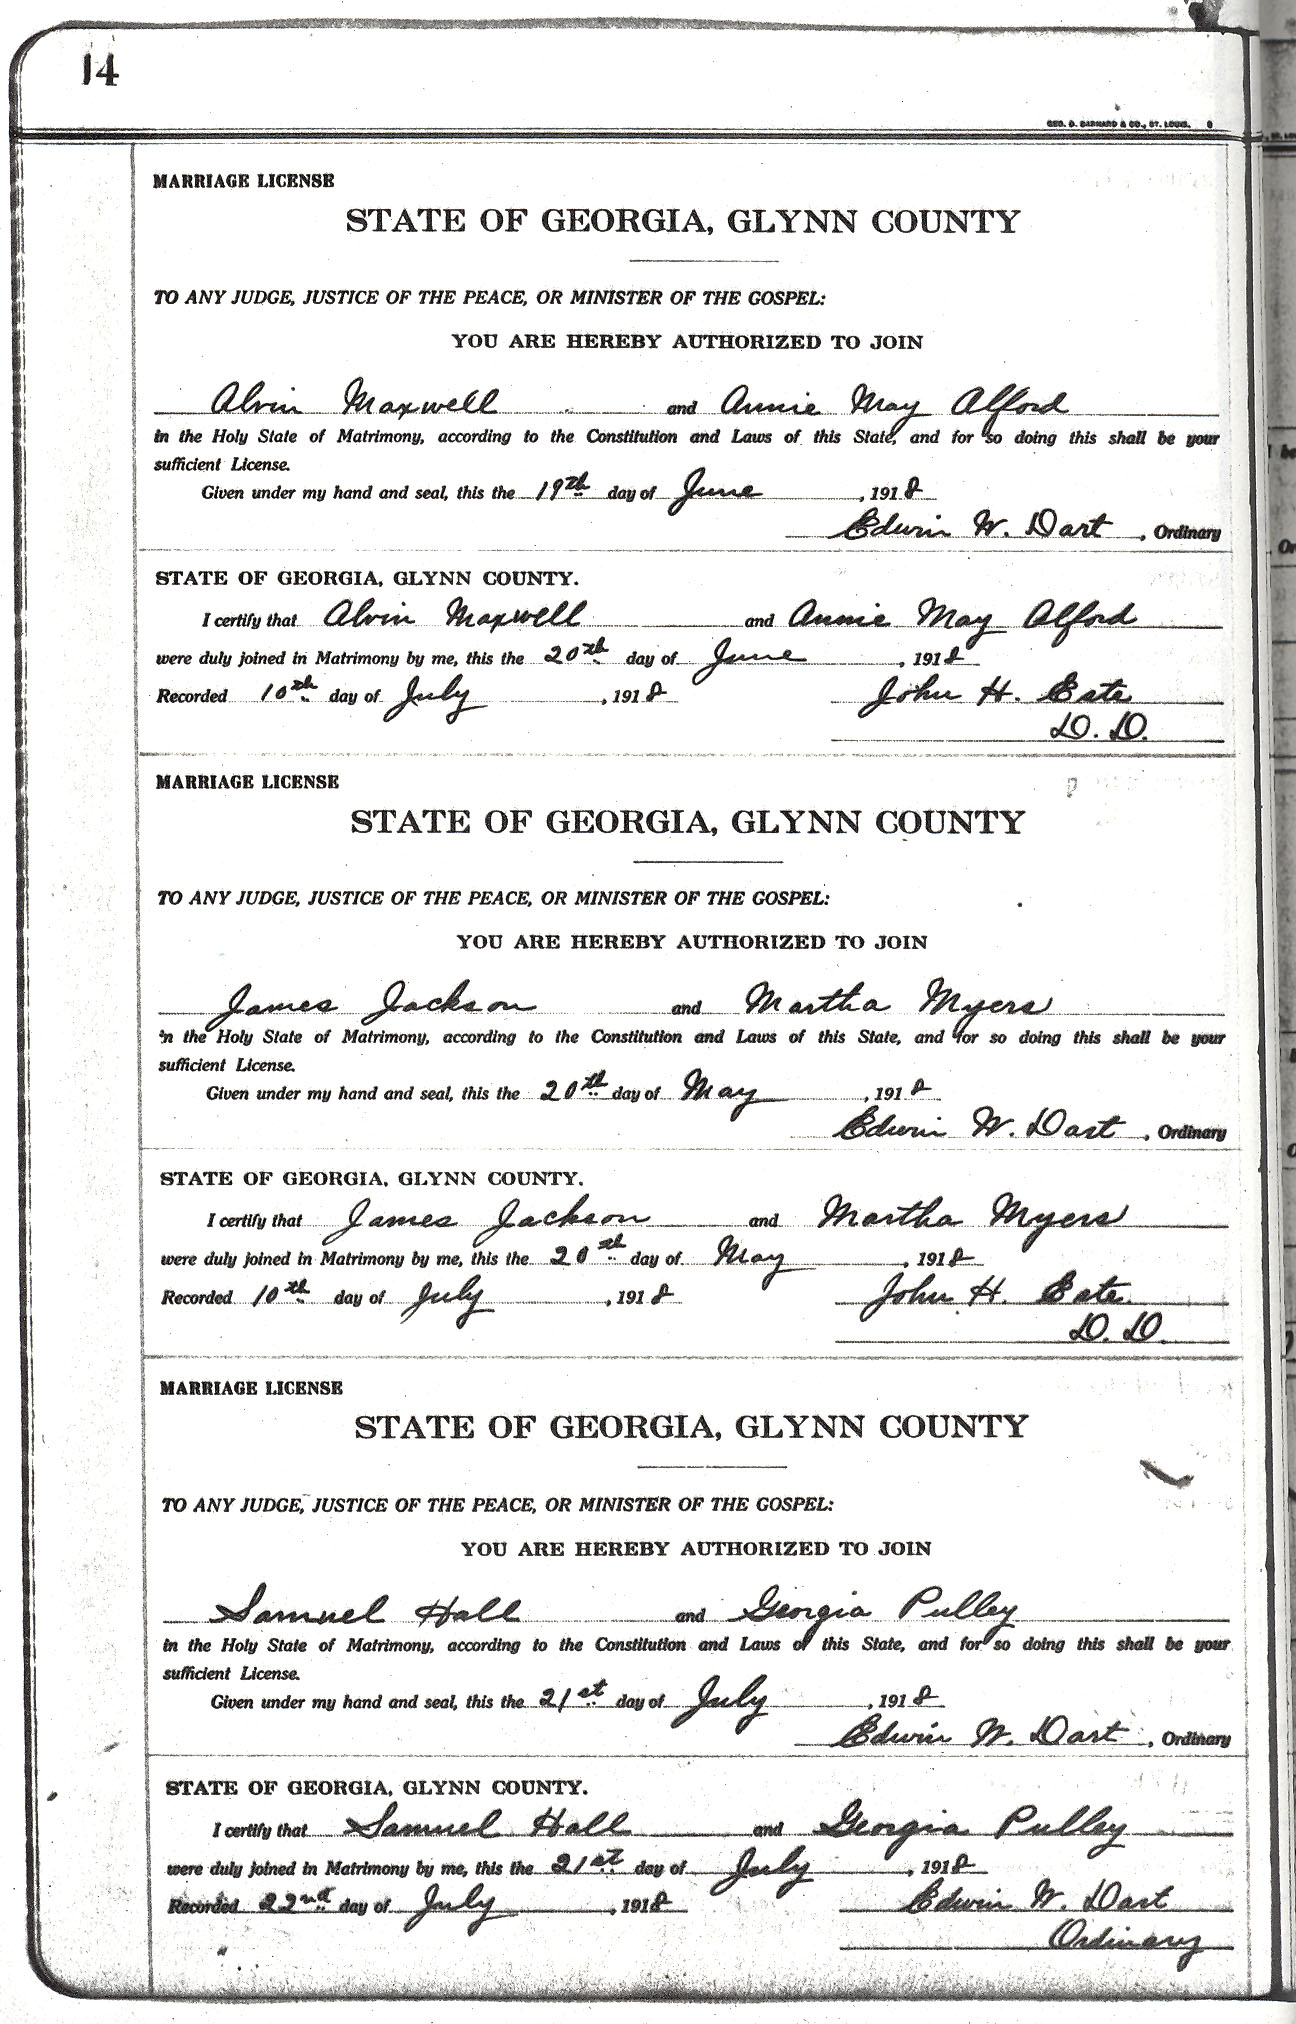 14
GEO. D. BARNARD & CO., ST. LOUIS.
MARRIAGE LICENSE
STATE OF GEORGIA, GLYNN COUNTY
TO ANY JUDGE, JUSTICE OF THE PEACE, OR MINISTER OF THE GOSPEL:
YOU ARE HEREBY AUTHORIZED TO JOIN
Alvin Maxwell and Annie May Alford
in the Holy State of Matrimony, according to the Constitution and Laws of this State, and for so doing this shall be your
sufficient License.
Given under my hand and seal, this the 19th day of June, 1918
Edwin W. Dart, Ordinary
STATE OF GEORGIA, GLYNN COUNTY.
I certify that Alvin Maxwell and Annie May Alford
were duly joined in Matrimony by me, this the 20th day of June, 1918
Recorded 10th day of July, 1918 John H. Este
D. D.
MARRIAGE LICENSE
STATE OF GEORGIA, GLYNN COUNTY
TO ANY JUDGE, JUSTICE OF THE PEACE, OR MINISTER OF THE GOSPEL:
YOU ARE HEREBY AUTHORIZED TO JOIN
James Jackson and Martha Myers
in the Holy State of Matrimony, according to the Constitution and Laws of this State, and for so doing this shall be your
sufficient License.
Given under my hand and seal, this the 20th day of May, 1918
Edwin W. Dart, Ordinary
STATE OF GEORGIA, GLYNN COUNTY.
I certify that James Jackson and Martha Myers
were duly joined in Matrimony by me, this the 20th day of May, 1918
Recorded 10th day of July, 1918 John H. Este.
D. D.
MARRIAGE LICENSE
STATE OF GEORGIA, GLYNN COUNTY
TO ANY JUDGE, JUSTICE OF THE PEACE, OR MINISTER OF THE GOSPEL:
YOU ARE HEREBY AUTHORIZED TO JOIN
Samuel Hall and Georgia Pulley
in the Holy State of Matrimony, according to the Constitution and Laws of this State, and for so doing this shall be your
sufficient License.
Given under my hand and seal, this the 21st day of July, 1918
Edwin W. Dart, Ordinary
STATE OF GEORGIA, GLYNN COUNTY.
I certify that Samuel Hall and Georgia Pulley
were duly joined in Matrimony by me, this the 21st day of July, 1918
Recorded 22nd day of July, 1918 Edwin W. Dart
Ordinary